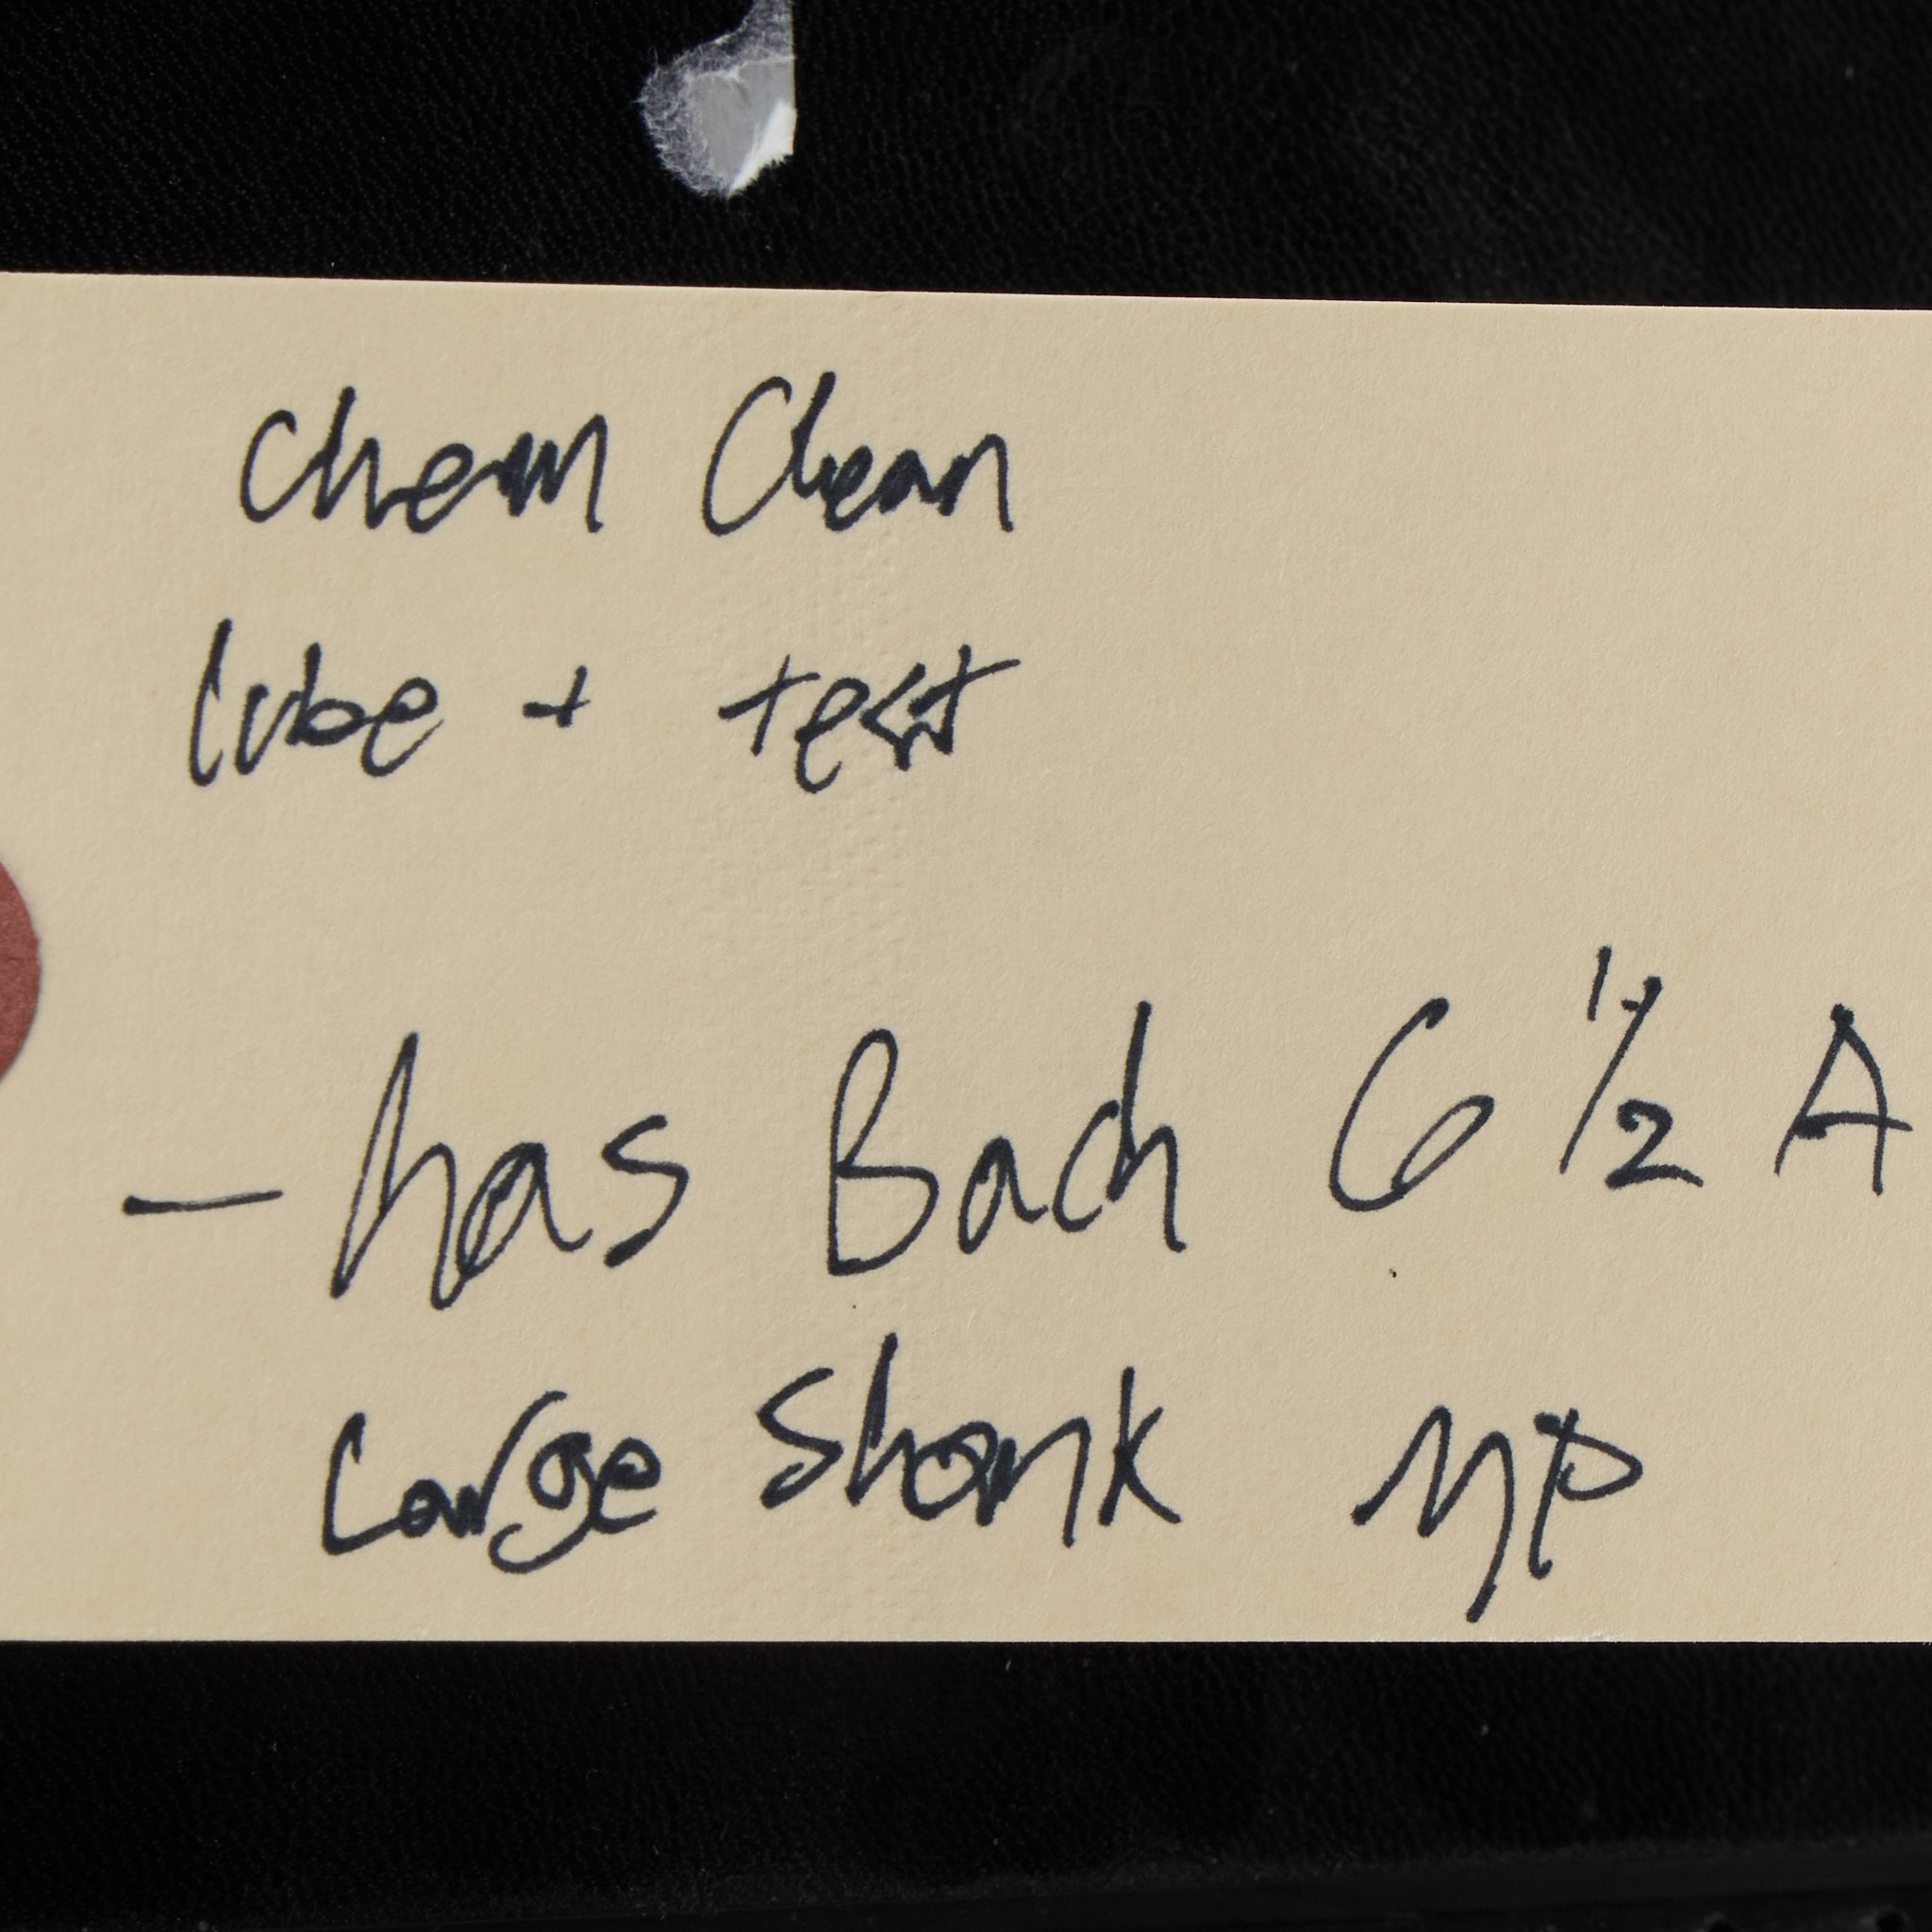 Chem Clean
lube + test
- has Bach 6 1/2 A
Large Shank MP